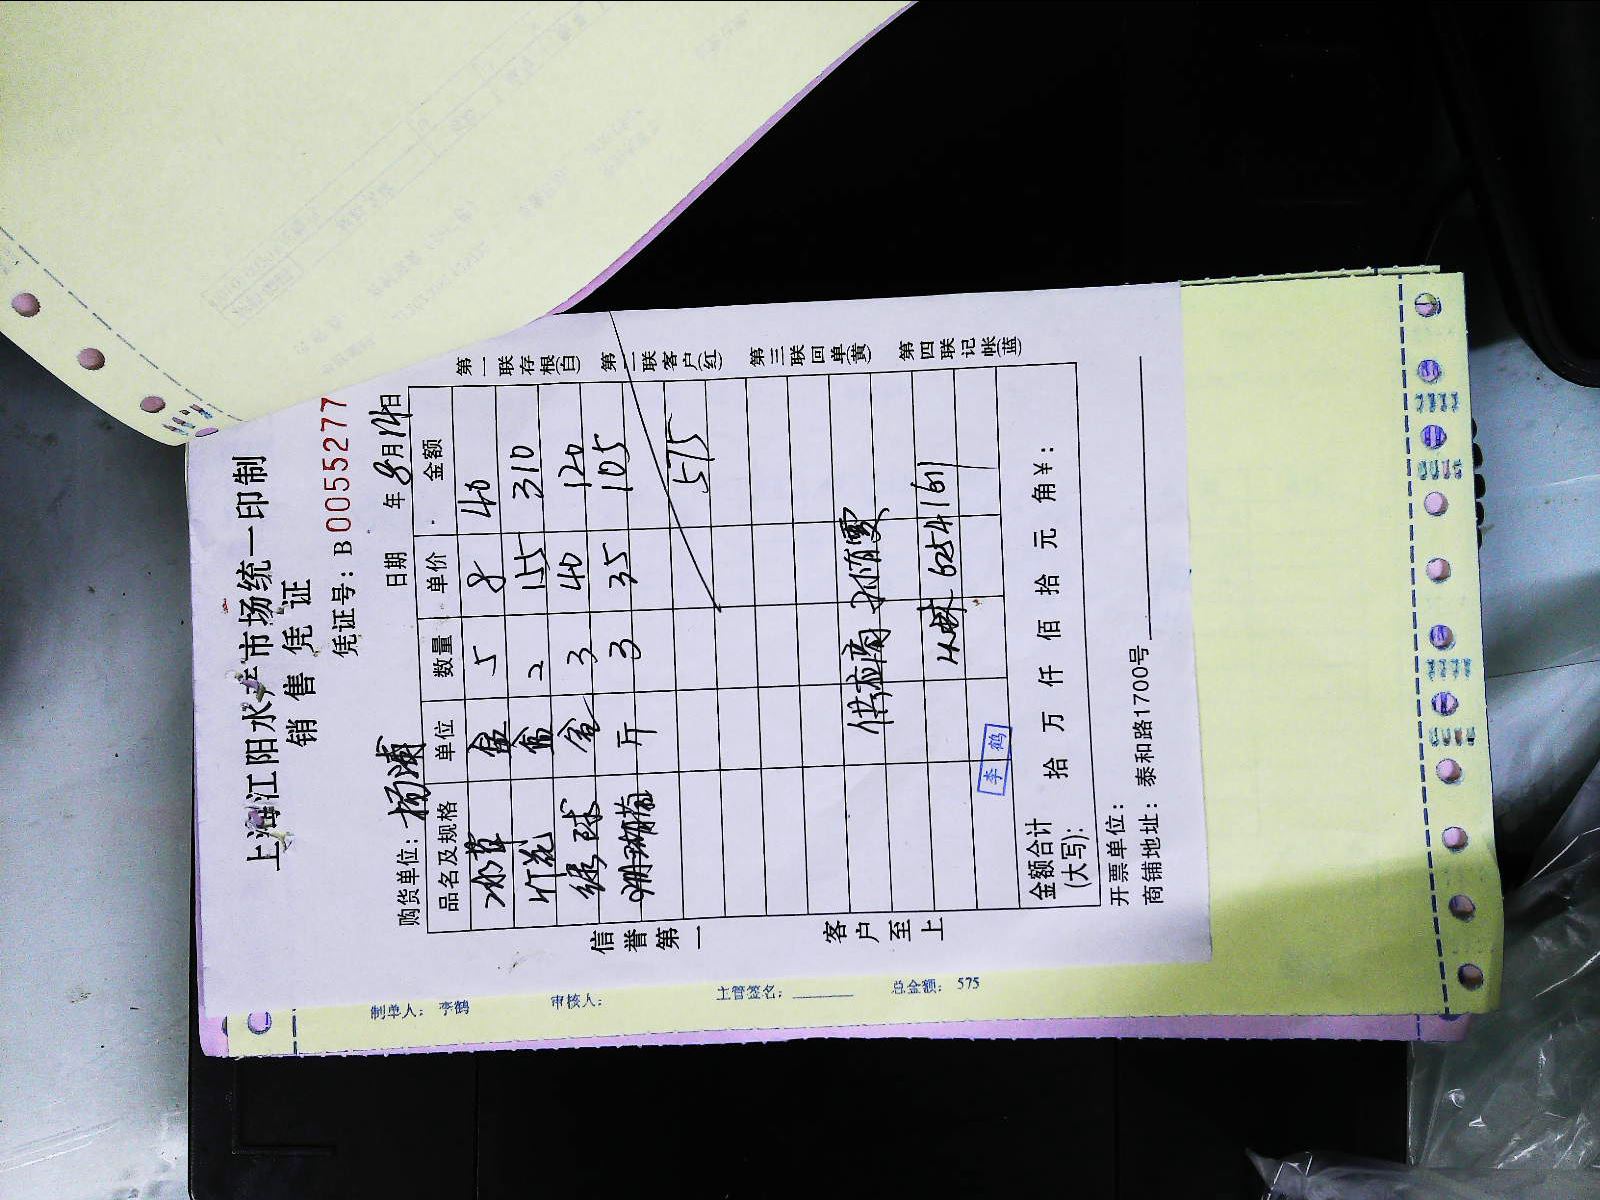 上海江阳水产市场统一印制
销售凭证
凭证号：B0055277
购货单位：杨浦 日期 年8月14日
品名及规格 单位 数量 单价 金额
冰草 盒 5 8 40
竹花 盒 2 155 310
绿球 盒 3 40 120
珊瑚菌 斤 3 35 105
575
供应商
6254 1601
李鹤
金额合计(大写)： 拾 万 仟 佰 拾 元 角 ¥：
开票单位：
商铺地址：泰和路1700号
信誉第一
客户至上
第一联存根(白)
第二联客户(红)
第三联回单(黄)
第四联记帐(蓝)
制单人：李鹤 审核人： 主管签名： 总金额：575